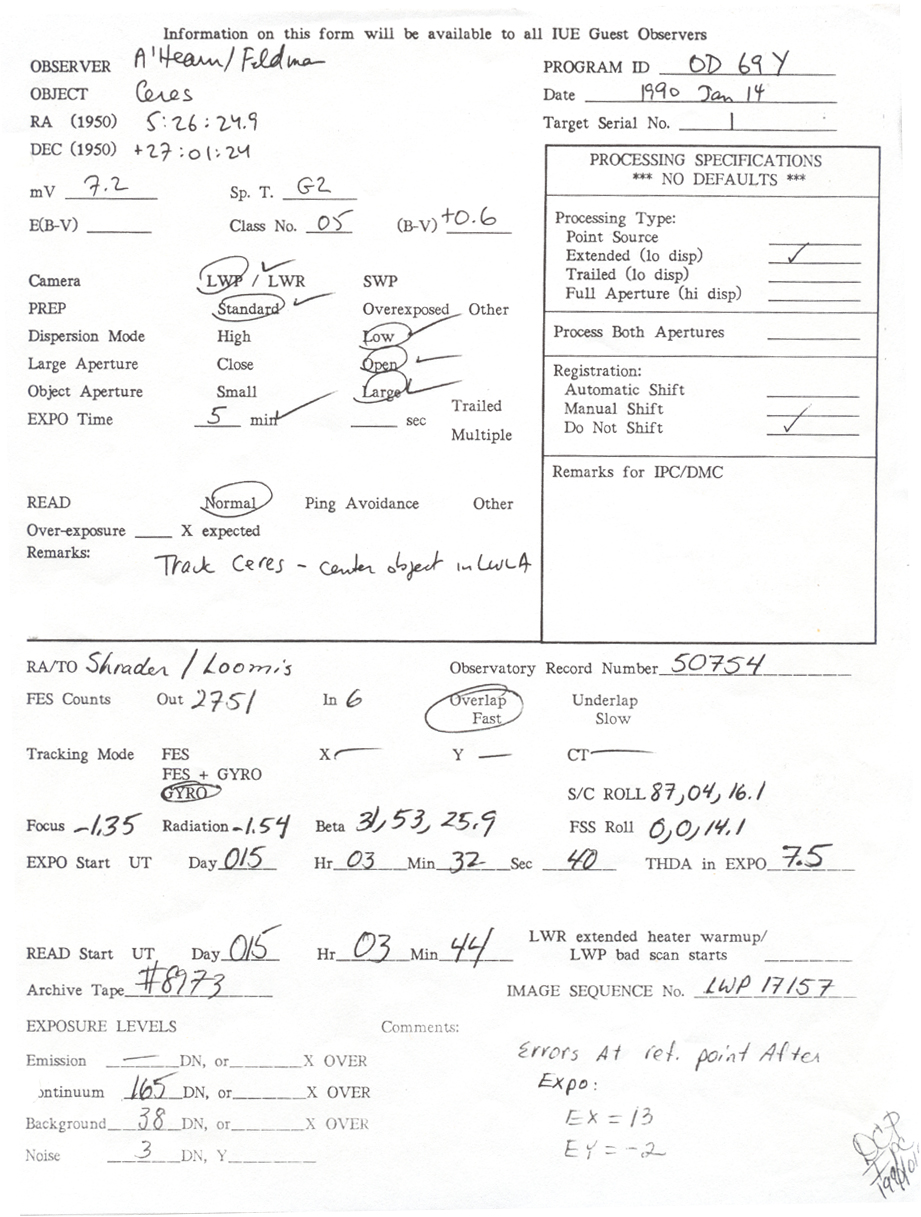 Information on this form will be available to all IUE Guest Observers
OBSERVER A'Hearn/Feldman
PROGRAM ID OD 69 Y
OBJECT Ceres
Date 1990 Jan 14
RA (1950) 5:26:24.9
Target Serial No. 1
DEC (1950) +27:01:24
PROCESSING SPECIFICATIONS
*** NO DEFAULTS ***
mV 7.2 Sp. T. G2
E(B-V) Class No. 05 (B-V) +0.6
Processing Type:
Point Source
Extended (lo disp) ✓
Trailed (lo disp)
Full Aperture (hi disp)
Camera LWP / LWR ✓ SWP
PREP Standard ✓ Overexposed Other
Dispersion Mode High Low ✓
Process Both Apertures
Large Aperture Close Open ✓
Object Aperture Small Large ✓
Registration:
Automatic Shift
Manual Shift
Do Not Shift ✓
EXPO Time 5 min ✓ sec Trailed
Multiple
Remarks for IPC/DMC
READ Normal Ping Avoidance Other
Over-exposure X expected
Remarks:
Track Ceres - center object in LWLA
RA/TO Shrader / Loomis Observatory Record Number 50754
FES Counts Out 2751 In 6 Overlap Underlap
Fast Slow
Tracking Mode FES X — Y — CT —
FES + GYRO
GYRO S/C ROLL 87,04,16.1
Focus -1.35 Radiation -1.54 Beta 31,53,25.9 FSS Roll 0,0,14.1
EXPO Start UT Day 015 Hr 03 Min 32 Sec 40 THDA in EXPO 7.5
READ Start UT Day 015 Hr 03 Min 44 LWR extended heater warmup/
LWP bad scan starts
Archive Tape #8973 IMAGE SEQUENCE No. LWP 17157
EXPOSURE LEVELS Comments:
Emission — DN, or X OVER
ontinuum 165 DN, or X OVER
Background 38 DN, or X OVER
Noise 3 DN, Y
Errors At ref. point After
Expo:
EX = 13
EY = -2